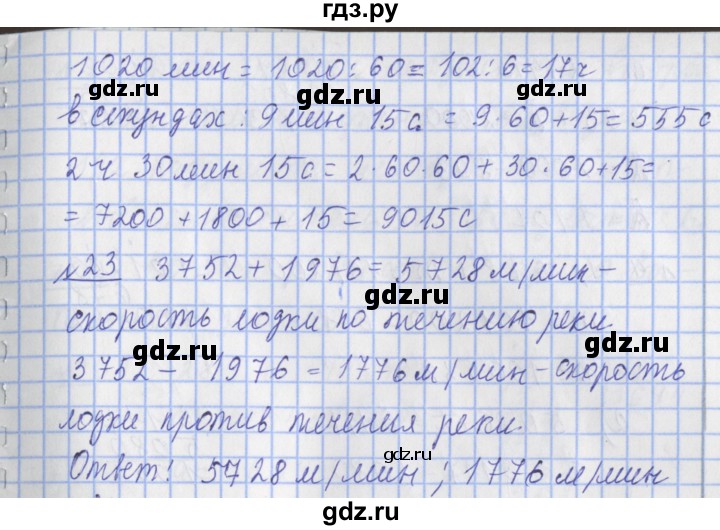 гдз.ру
1020 мин = 1020 : 60 = 102 : 6 = 17 ч
gdz.ru gdz.ru gdz.ru
в секундах : 9 мин 15 с. = 9 · 60 + 15 = 555 с
2 ч 30 мин 15 с = 2 · 60 · 60 + 30 · 60 + 15 =
= 7200 + 1800 + 15 = 9015 с
gdz.ru
№ 23 3752 + 1976 = 5728 м/мин –
gdz.ru
скорость лодки по течению реки.
gdz.ru gdz.ru
3752 – 1976 = 1776 м/мин – скорость
лодки против течения реки.
gdz.ru
Ответ! 5728 м/мин ; 1776 м/мин
gdz.ru gdz.ru
гдз.ру